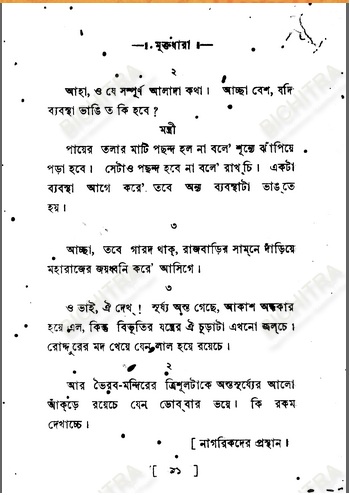 —। মুক্তধারা ।—
২
আহা, ও যে সম্পূর্ণ আলাদা কথা। আচ্ছা বেশ, যদি
ব্যবস্থা ভাঙি ত কি হবে?
মন্ত্রী
পায়ের তলার মাটি পছন্দ হল না বলে' শূন্যে ঝাঁপিয়ে
পড়া হবে। সেটাও পছন্দ হবে না বলে' রাখ্‌চি। একটা
ব্যবস্থা আগে করে' তবে অন্য ব্যবস্থাটা ভাঙ্‌তে
হয়।
৩
আচ্ছা, তবে গারদ থাক্, রাজবাড়ির সাম্‌নে দাঁড়িয়ে
মহারাজের জয়ধ্বনি করে' আসিগে।
৩
ও ভাই, ঐ দেখ্! সূর্য্য অস্ত গেছে, আকাশ অন্ধকার
হয়ে এল, কিন্তু বিভূতির যন্ত্রের ঐ চূড়াটা এখনো জল্‌চে।
রোদ্দুরের মদ খেয়ে যেন লাল হয়ে রয়েচে।
২
আর ভৈরব-মন্দিরের ত্রিশূলটাকে অস্তসূর্য্যের আলো
আঁক্‌ড়ে রয়েচে যেন ডোব্‌বার ভয়ে। কি রকম
দেখাচ্চে।
[ নাগরিকদের প্রস্থান।
[ ৯১ ]
BICHITRA
BICHITRA
BICHITRA
BICHITRA